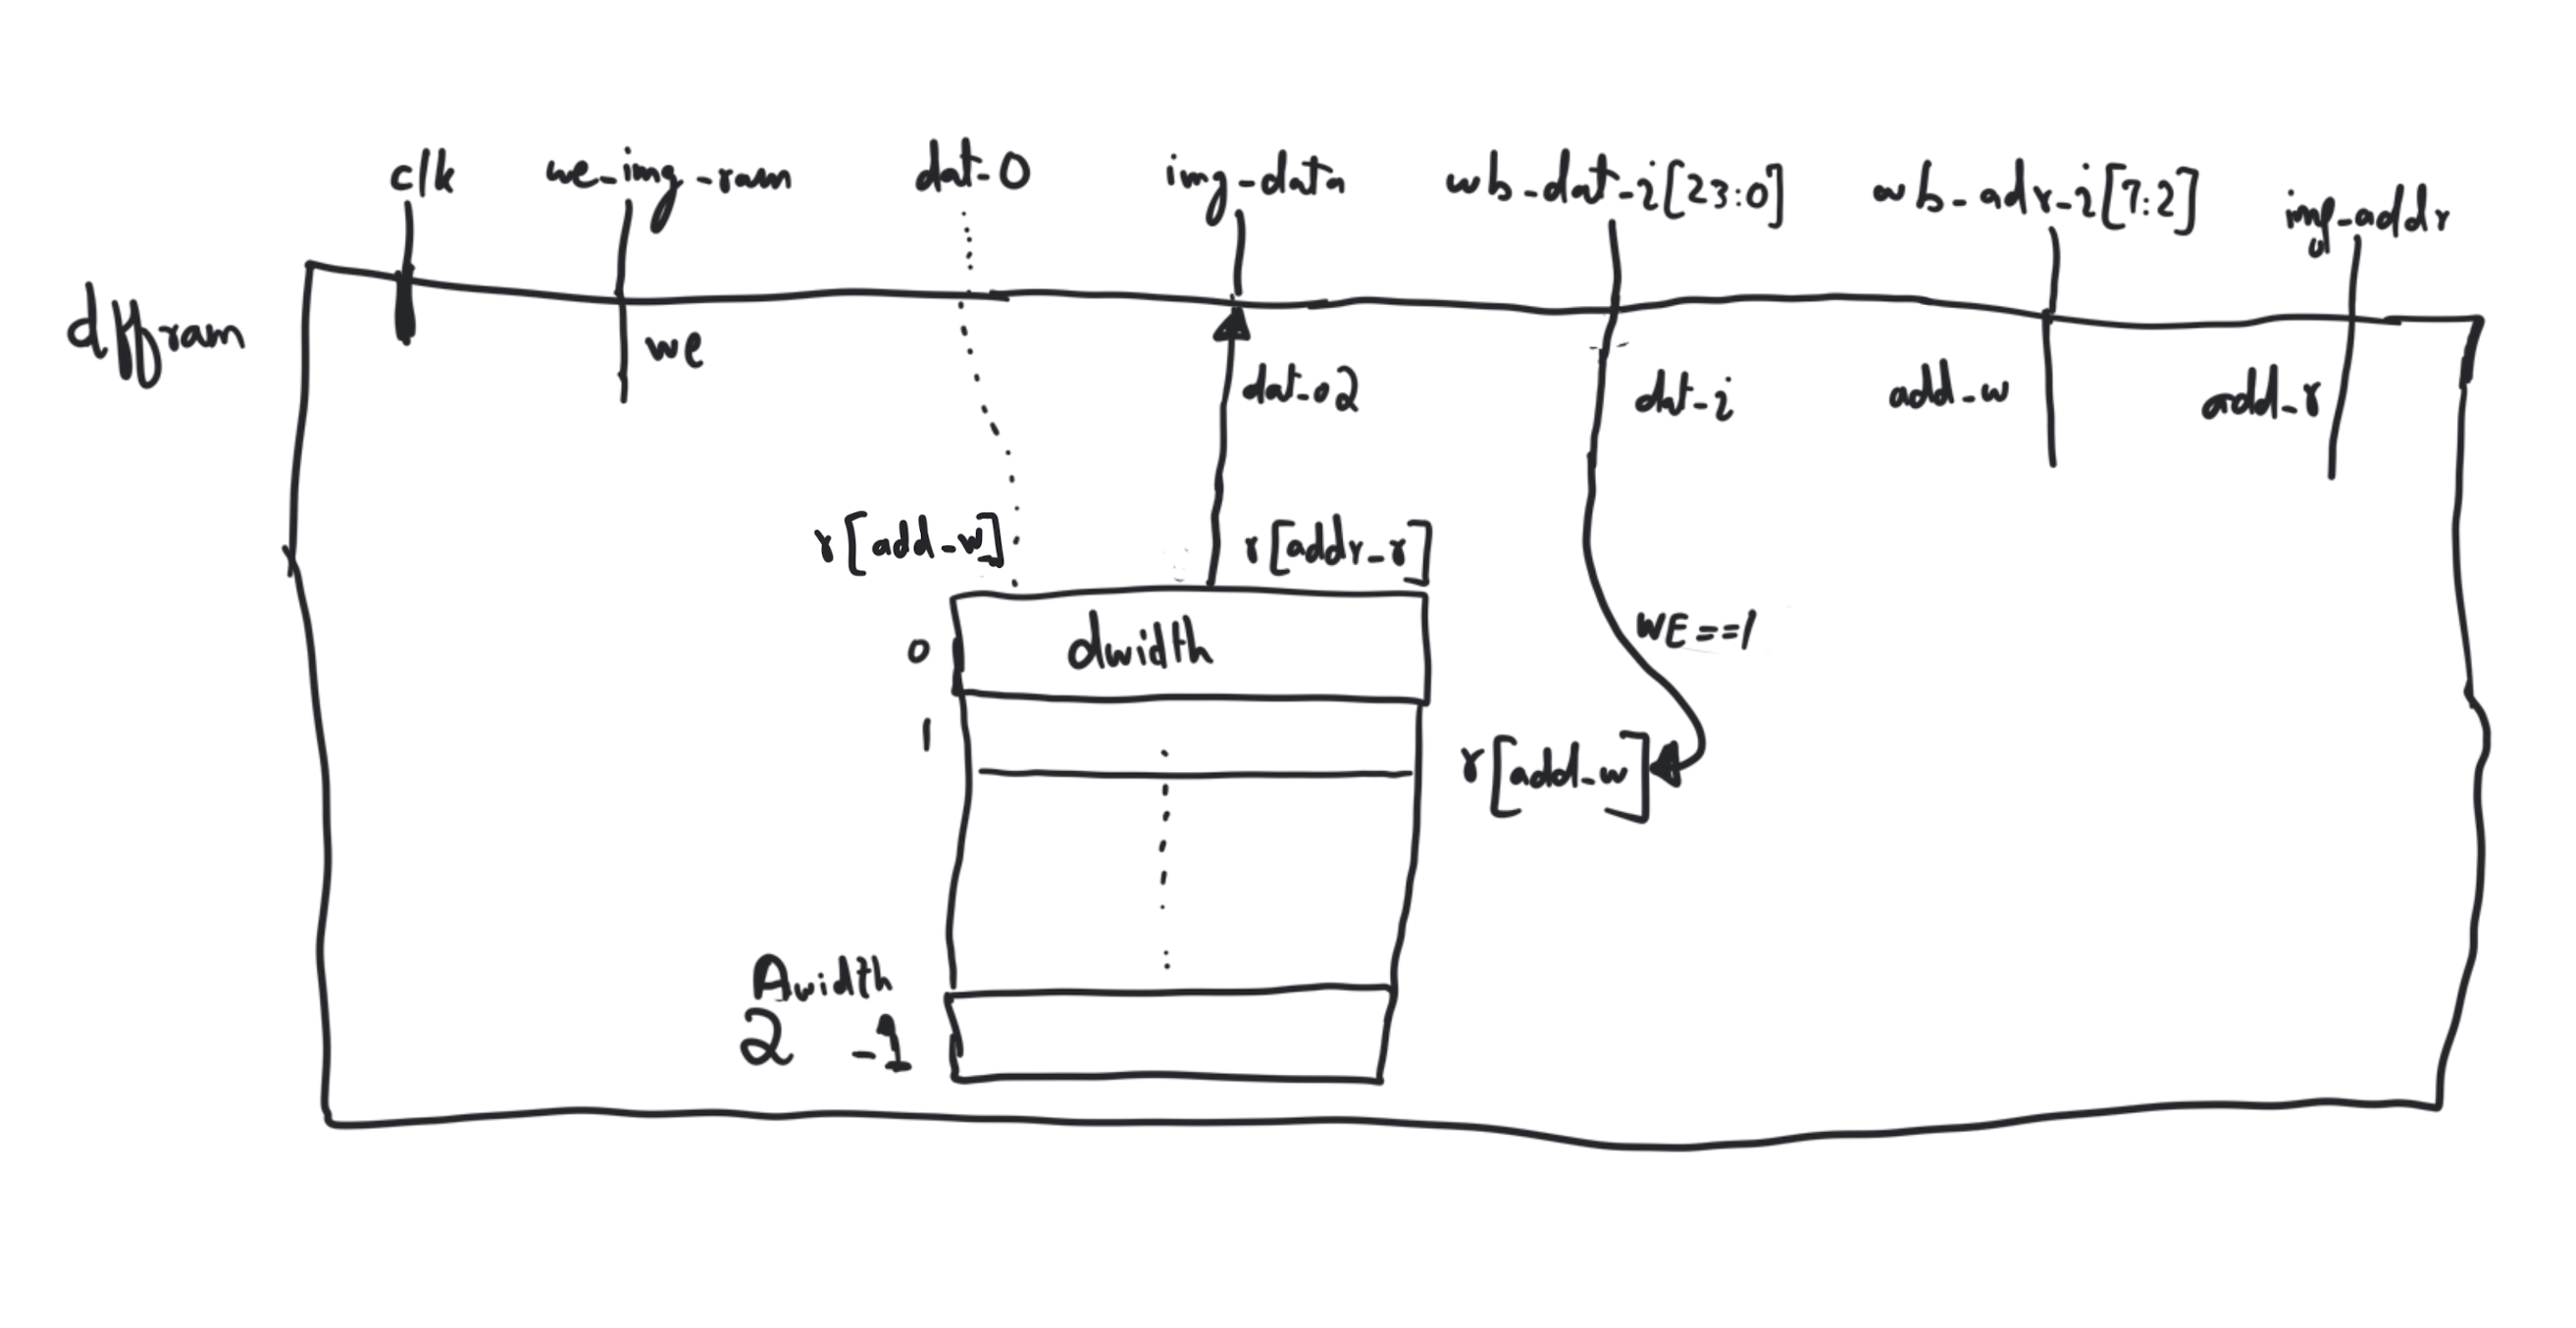 clk we_img_ram dat_0 img_data wb_dat_i[23:0] wb_adr_i[7:2] img_addr
dffram
we dat_o2 dat_i add_w add_r
r[add_w] r[addr_r]
0 dwidth WE==1
1
r[add_w]
Awidth
2 -1